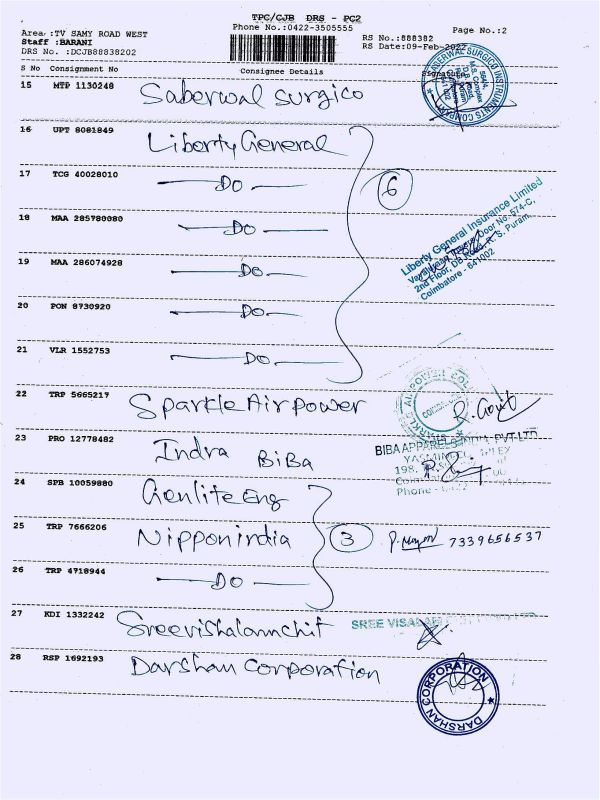 TPC/CJB DRS - PC2
Phone No.:0422-3505555
Page No.:2
Area :TV SAMY ROAD WEST
Staff :BARANI
DRS No. :DCJB88838202
RS No.:888382
RS Date:09-Feb-2022
S No Consignment No Consignee Details Signature
15 MTP 1130248 Saberwal Surgico
16 UPT 8081849 Liberty General
17 TCG 40028010 DO
6
18 MAA 285780080 DO
19 MAA 286074928 DO
20 PON 8730920 DO
21 VLR 1552753 DO
Liberty General Insurance Limited
Door No. 574-C,
2nd Floor, DB Road, R. S. Puram,
Coimbatore - 641002
22 TRP 5665217 Sparkle Air power
23 PRO 12778482 Indra BiBa
BIBA APPARELS PVT LTD
24 SPB 10059880 Genlite Eng
25 TRP 7666206 Nippon india 3 7339656537
26 TRP 4718944 DO
27 KDI 1332242 Sreevishalamchit
SREE
28 RSP 1692193 Darshan Corporation
DARSHAN CORPORATION